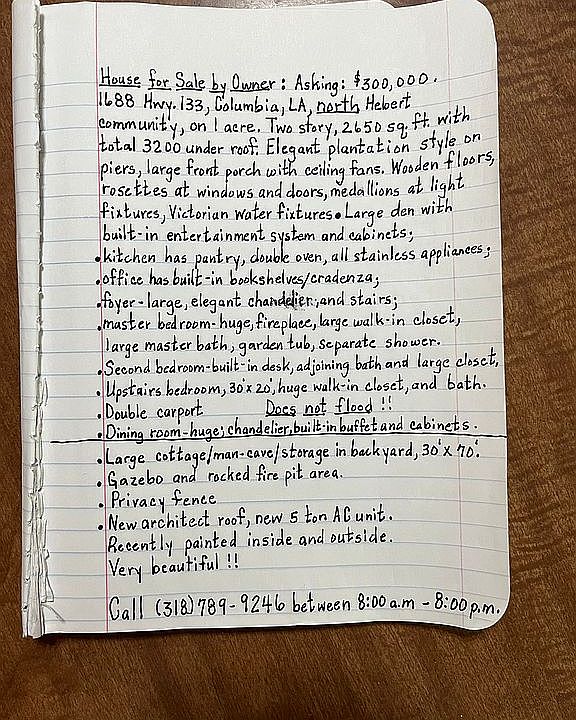 House for Sale by Owner: Asking: $300,000.
1688 Hwy. 133, Columbia, LA, north Hebert
community, on 1 acre. Two story, 2650 sq. ft. with
total 3200 under roof. Elegant plantation style on
piers, large front porch with ceiling fans. Wooden floors,
rosettes at windows and doors, medallions at light
fixtures, Victorian water fixtures • Large den with
built-in entertainment system and cabinets;
• kitchen has pantry, double oven, all stainless appliances;
• office has built-in bookshelves/cradenza;
• foyer - large, elegant chandelier, and stairs;
• master bedroom - huge, fireplace, large walk-in closet,
large master bath, garden tub, separate shower.
• Second bedroom - built-in desk, adjoining bath and large closet,
• Upstairs bedroom, 30'x 20', huge walk-in closet, and bath.
• Double carport Does not flood !!
• Dining room - huge; chandelier, built-in buffet and cabinets.
• Large cottage/man-cave/storage in backyard, 30'x 70'.
• Gazebo and rocked fire pit area.
• Privacy fence
• New architect roof, new 5 ton AC unit.
Recently painted inside and outside.
Very beautiful !!
Call (318) 789-9246 between 8:00 a.m - 8:00 p.m.